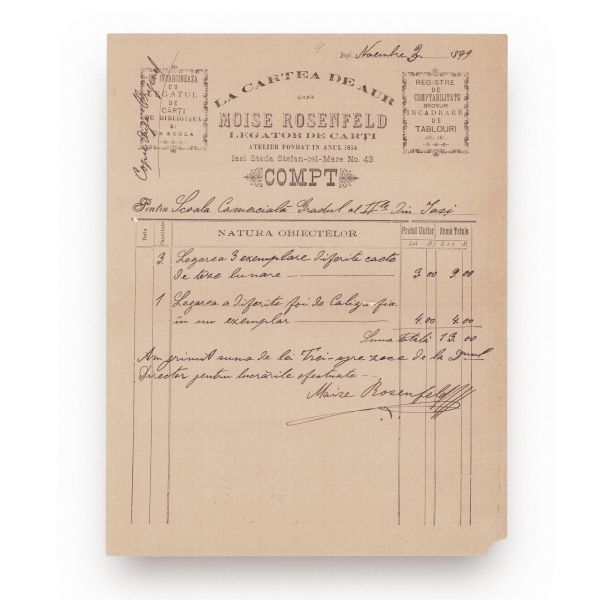 4
Iași, Noembre 3 1899
SE ÎNSĂRCINEAZĂ
CU
LEGATUL
DE
CĂRȚI
DE BIBLIOTECA
ȘI
ȘCOLA
LA CARTEA DE AUR
MOISE ROSENFELD
LEGATOR DE CARȚI
ATELIER FONDAT IN ANUL 1854
Iasi Stada Stefan-cel-Mare No. 43
COMPT
REGISTRE
DE
COMPTABILITATE
BROSURI
INCADRARE
DE
TABLOURI
etc. etc.
Pentru Scoala Comercială Gradul al II lea din Iași
Data Cantitatea NATURA OBIECTELOR Prețul Unitar Sumă Totale
Lei B Lei B
3 Legarea 3 exemplare diferite caete
de teze lunare 3 00 9 00
1 Legarea a diferite foi de Caligrafia
în un exemplar 4.00 4.00
Suma totală 13.00
Am primit suma de lei Trei-spre zece de la Dnul
Director pentru lucrările efectuate
Moise Rosenfeld